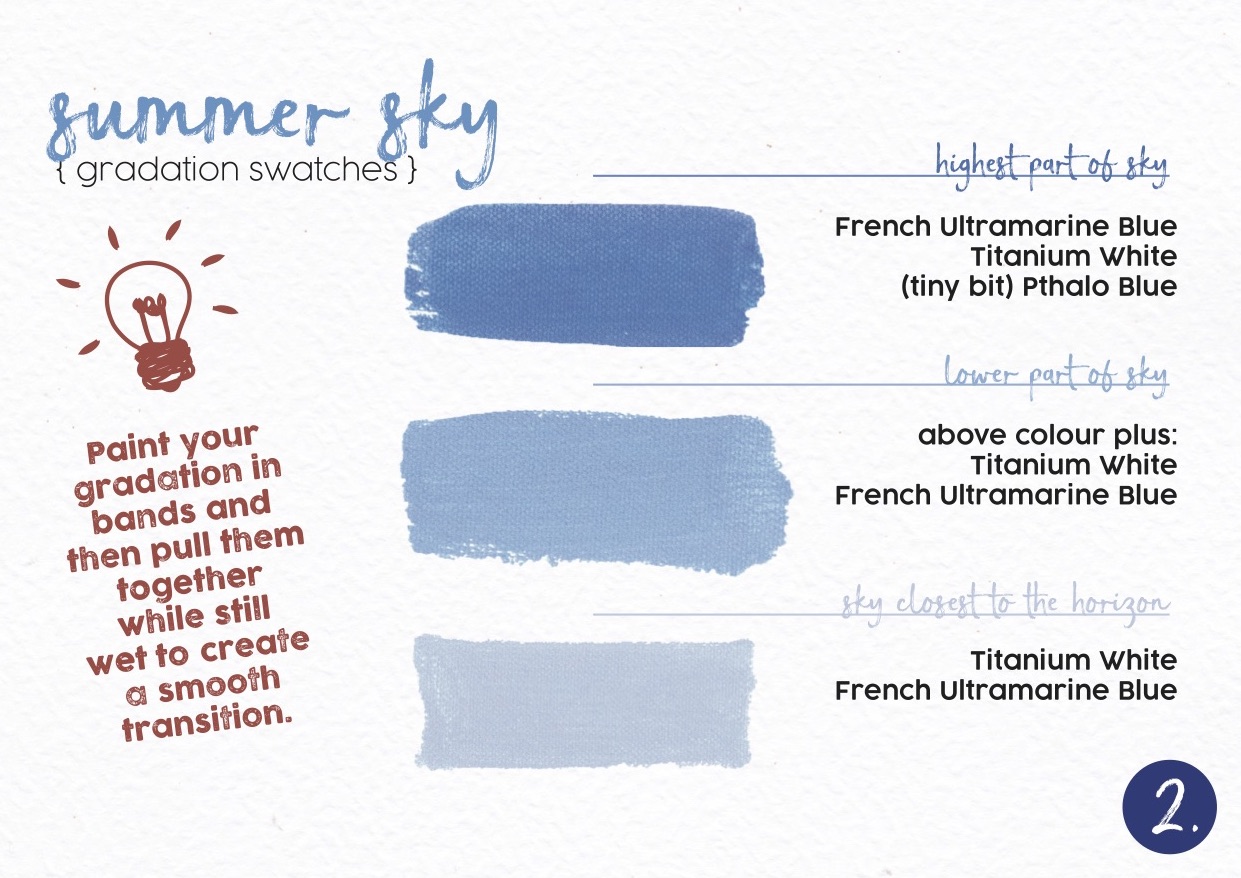 summer sky
{ gradation swatches }
highest part of sky
French Ultramarine Blue
Titanium White
(tiny bit) Pthalo Blue
lower part of sky
above colour plus:
Titanium White
French Ultramarine Blue
sky closest to the horizon
Titanium White
French Ultramarine Blue
Paint your
gradation in
bands and
then pull them
together
while still
wet to create
a smooth
transition.
2.